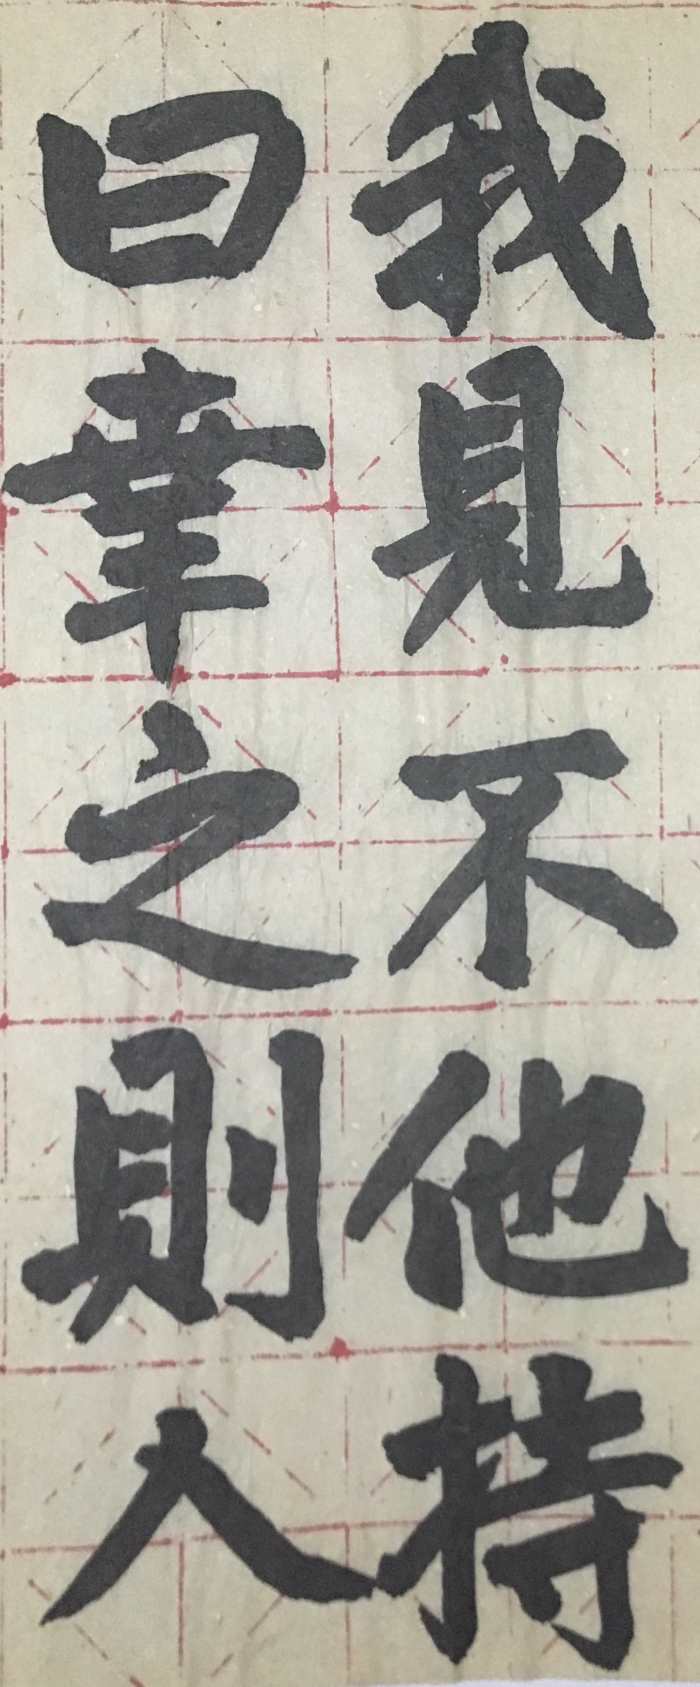 我見不他持
曰幸之則入